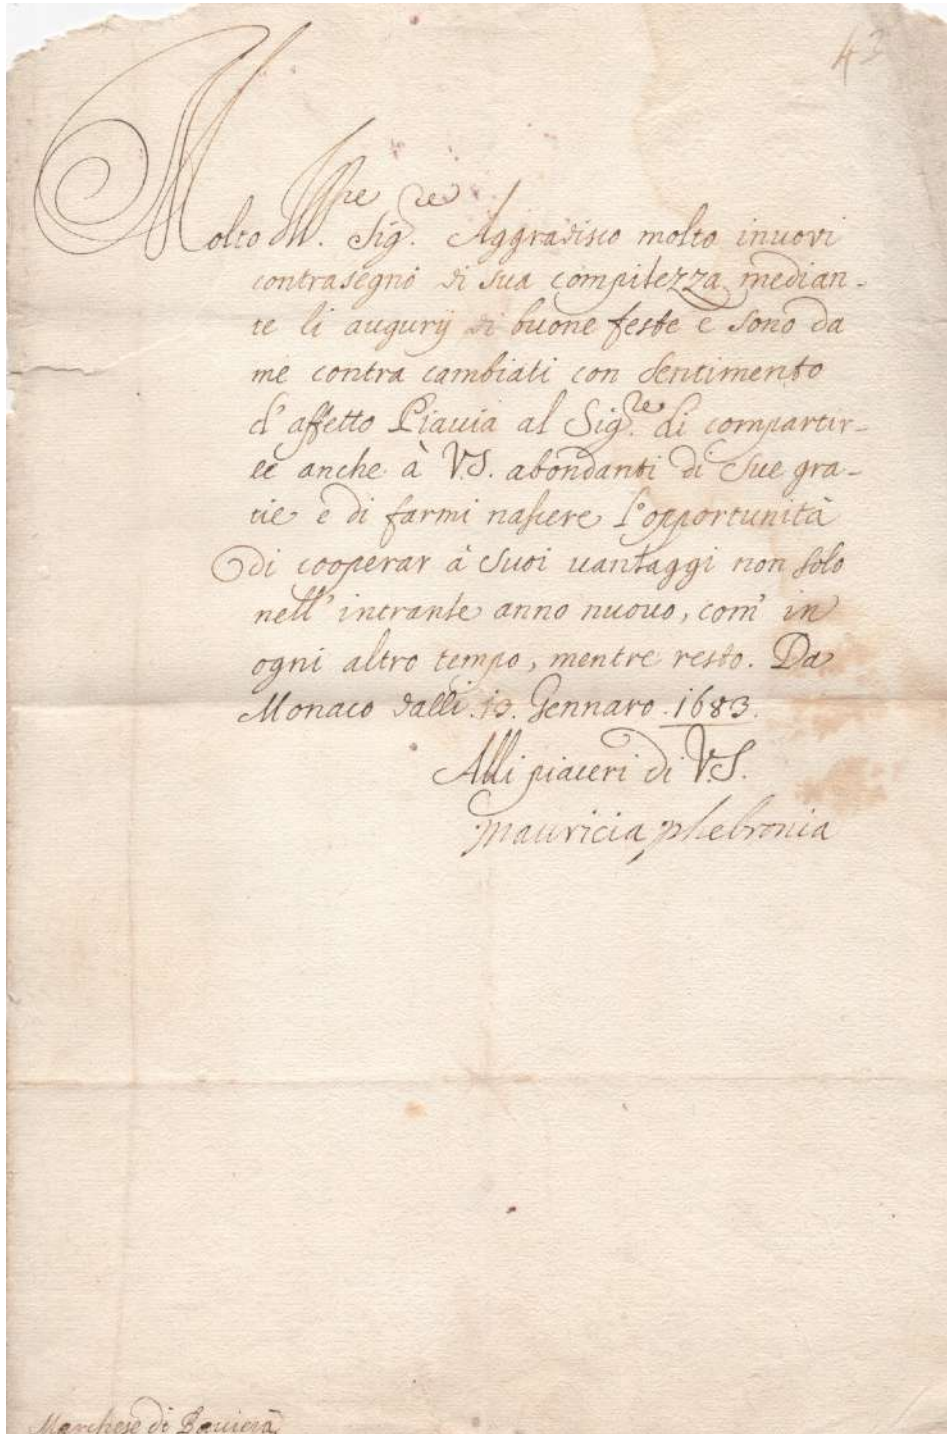 43
Molto Ill.re Sig.re Aggradisco molto i nuovi
contrasegni di sua compitezza median-
te li augurij di buone feste e sono da
me contra cambiati con sentimento
d'affetto Piavia al Sig.re di compartir-
le anche à V.S. abondanti di sue gra-
tie e di farmi nascere l'opportunità
di cooperar à suoi uantaggi non solo
nell' intrante anno nuouo, com' in
ogni altro tempo, mentre resto. Da
Monaco dalli .10. Gennaro .1683.
Alli piaceri di V.S.
Mauricia phebronia
Marchese di Bauiera